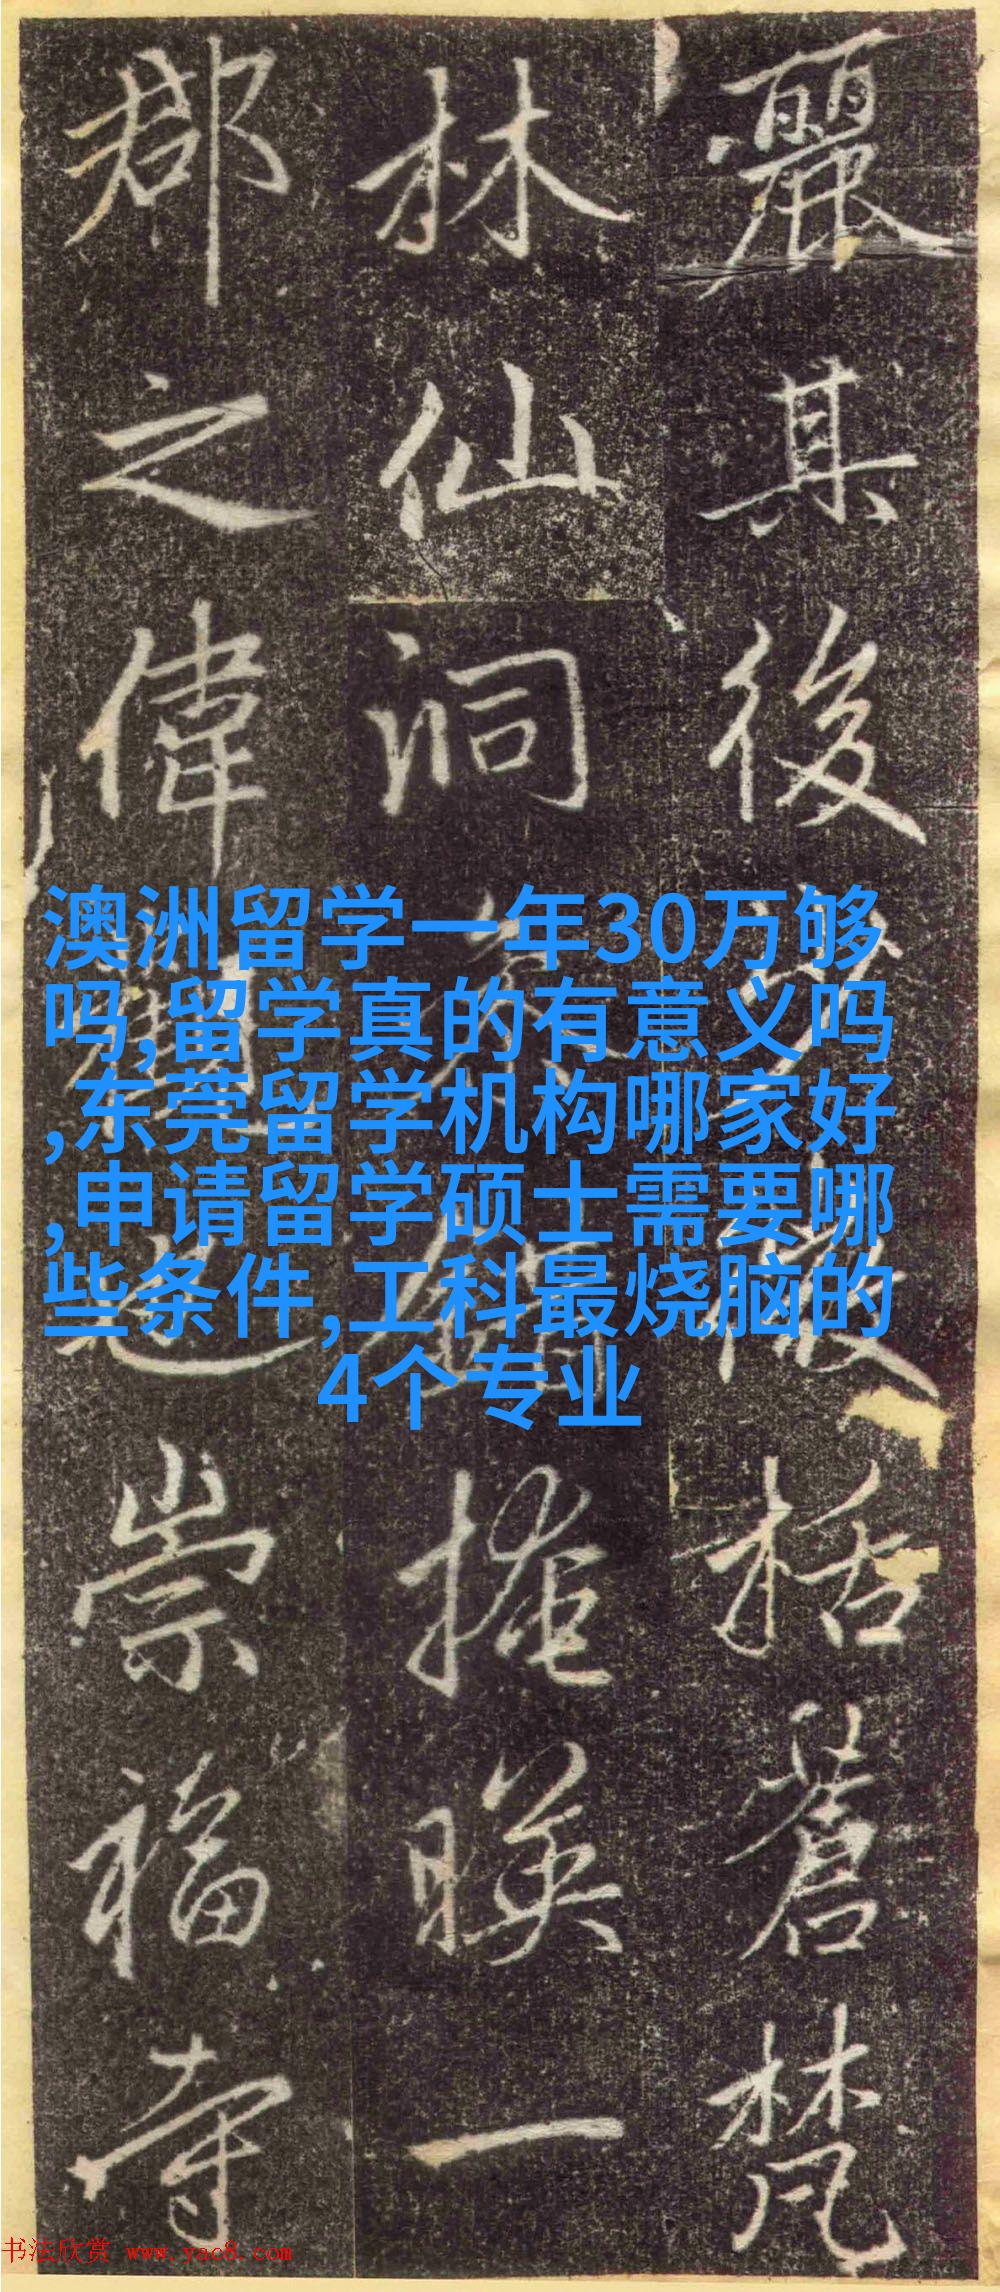 麗其後括蒼梵
林仙洞掩暎一
郡之偉崇福寺
澳洲留学一年30万够
吗,留学真的有意义吗
,东莞留学机构哪家好
,申请留学硕士需要哪
些条件,工科最烧脑的
4个专业
书法欣赏 www.yac8.com